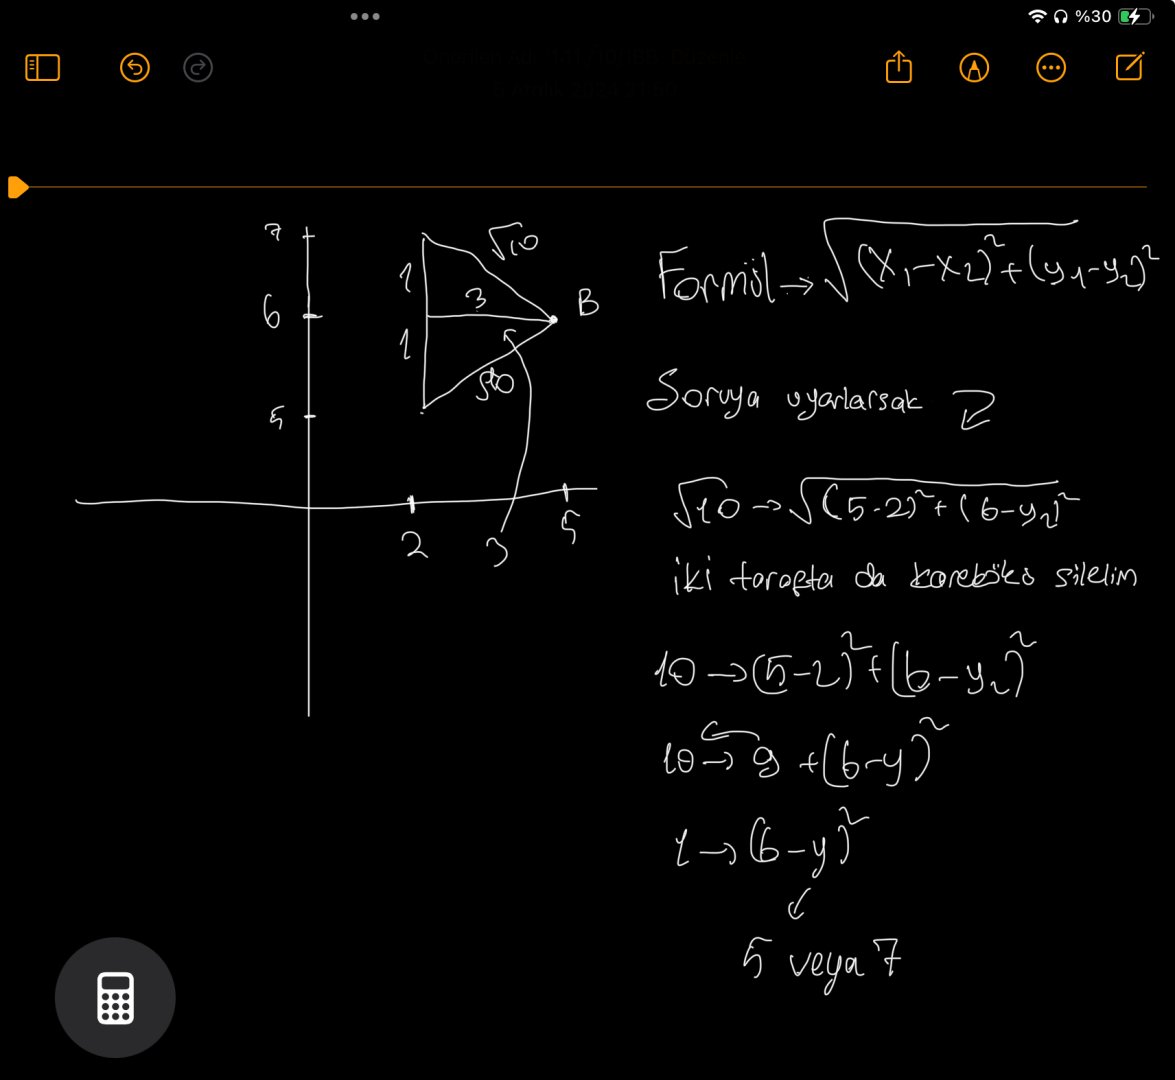 %30
7
6
5
1
1
3
√10
√10
B
2
3
5
Formül → √(x₁-x₂)²+(y₁-y₂)²
Soruya uyarlarsak
√10 → √(5-2)²+(6-y₂)²
iki tarafta da karekökü silelim
10 → (5-2)²+(6-y₂)²
10 → 9 +(6-y)²
1 → (6-y)²
5 veya 7